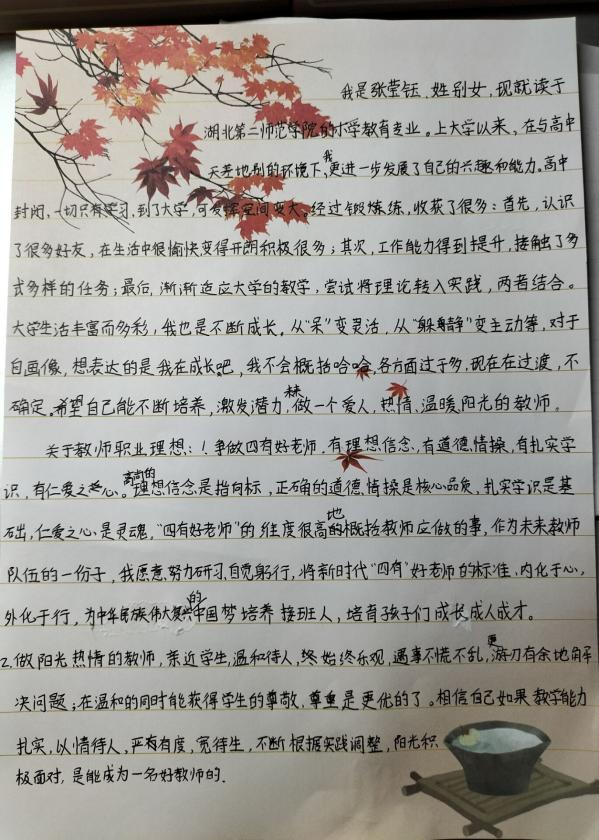 我是张莹钰、姓别女,现就读于
湖北第二师范学院的小学教育专业。上大学以来,在与高中
天差地别的环境下,我更进一步发展了自己的兴趣和能力。高中
封闭、一切只有学习,到了大学,可发挥空间变大。经过锻炼练,收获了很多:首先,认识
了很多好友,在生活中很愉快变得开朗积极很多;其次,工作能力得到提升,接触了多
式多样的任务;最后,渐渐适应大学的教学,尝试将理论转入实践,两者结合。
大学生活丰富而多彩,我也是不断成长。从“呆”变灵活,从“躲静”变主动等,对于
自画像,想表达的是我在成长吧,我不会概括哈哈,各方面过于多,现在在过渡,不
确定。希望自己能不断培养,激发潜力,做一个爱人,热情、温暖,阳光的教师。
关于教师职业理想:1.争做四有好老师,有理想信念,有道德情操,有扎实学
识,有仁爱之心。崇高的理想信念是指向标,正确的道德情操是核心品质,扎实学识是基
础,仁爱之心是灵魂,“四有好老师”的维度很高地概括教师应做的事,作为未来教师
队伍的一份子,我愿意努力研习,自觉躬行,将新时代“四有”好老师的标准,内化于心,
外化于行,为中华民族伟大复兴的中国梦培养接班人,培育孩子们成长成人成才。
2.做阳光热情的教师,亲近学生,温和待人,终始终乐观,遇事不慌不乱,更游刃有余地解
决问题;在温和的同时能获得学生的尊敬,尊重是更优的了。相信自己如果教学能力
扎实,以情待人,严有有度,宽待生,不断根据实践调整,阳光积
极面对,是能成为一名好教师的.